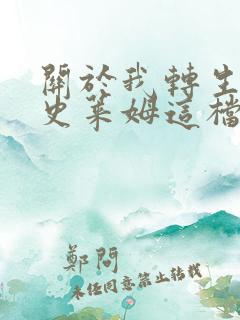 關於我轉生
史萊姆這檔
鄭問
未經同意禁止轉載